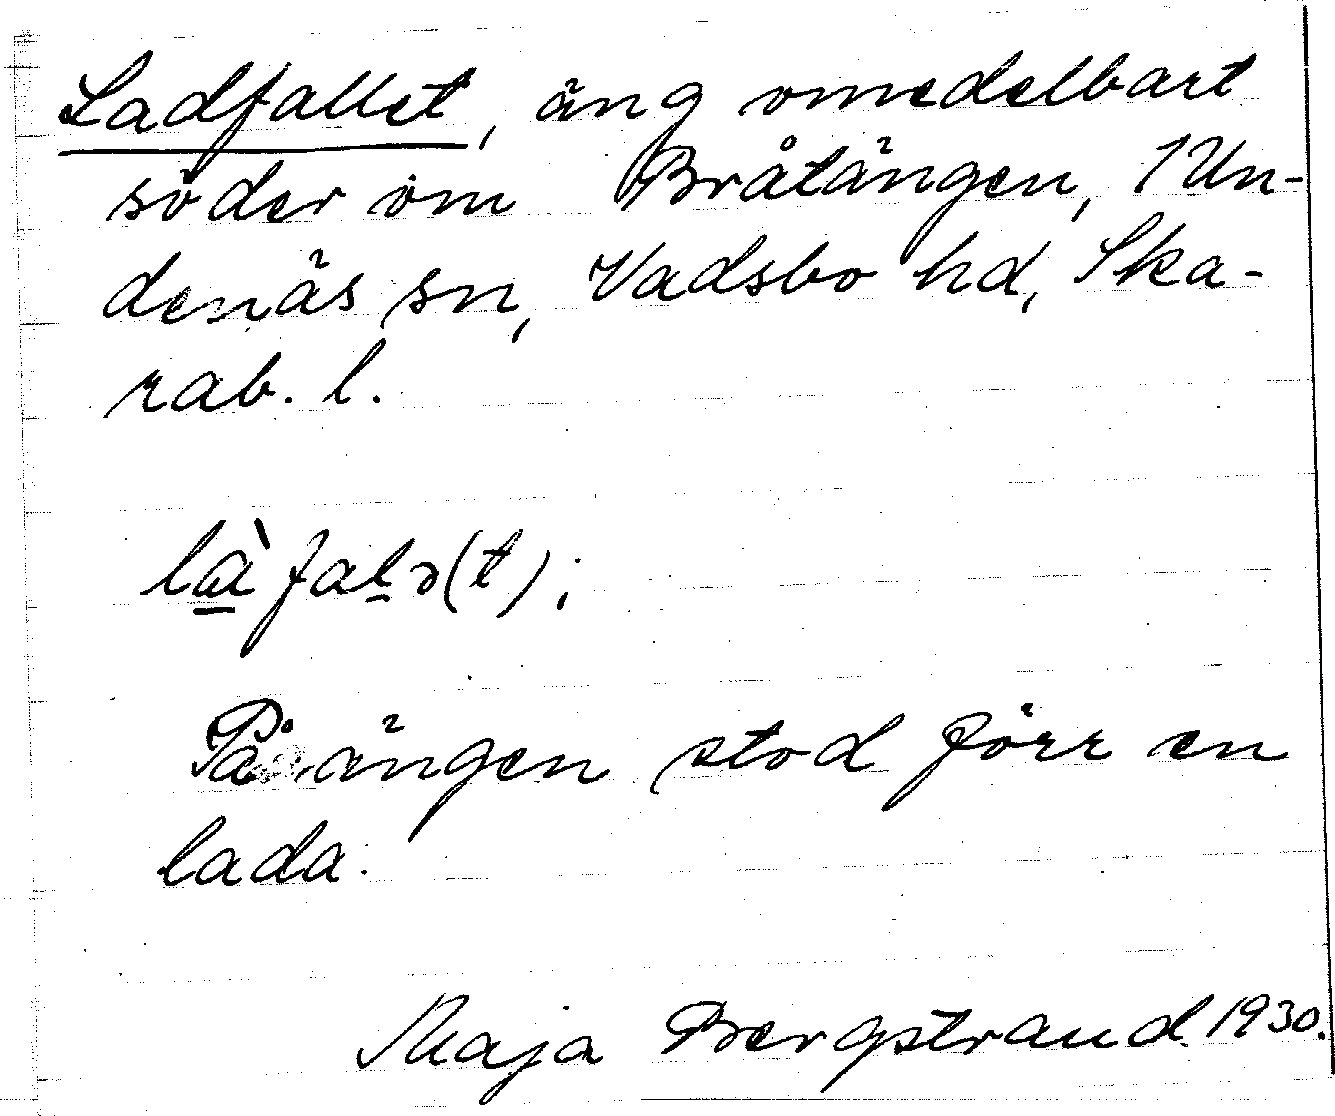 Ladfallet, äng omedelbart
söder om Bråtängen, 1 Un-
denäs sn, Vadsbo hd, Ska-
rab. l.
là falə(t);
På ängen stod förr en
lada.
Maja Bergstrand 1930.